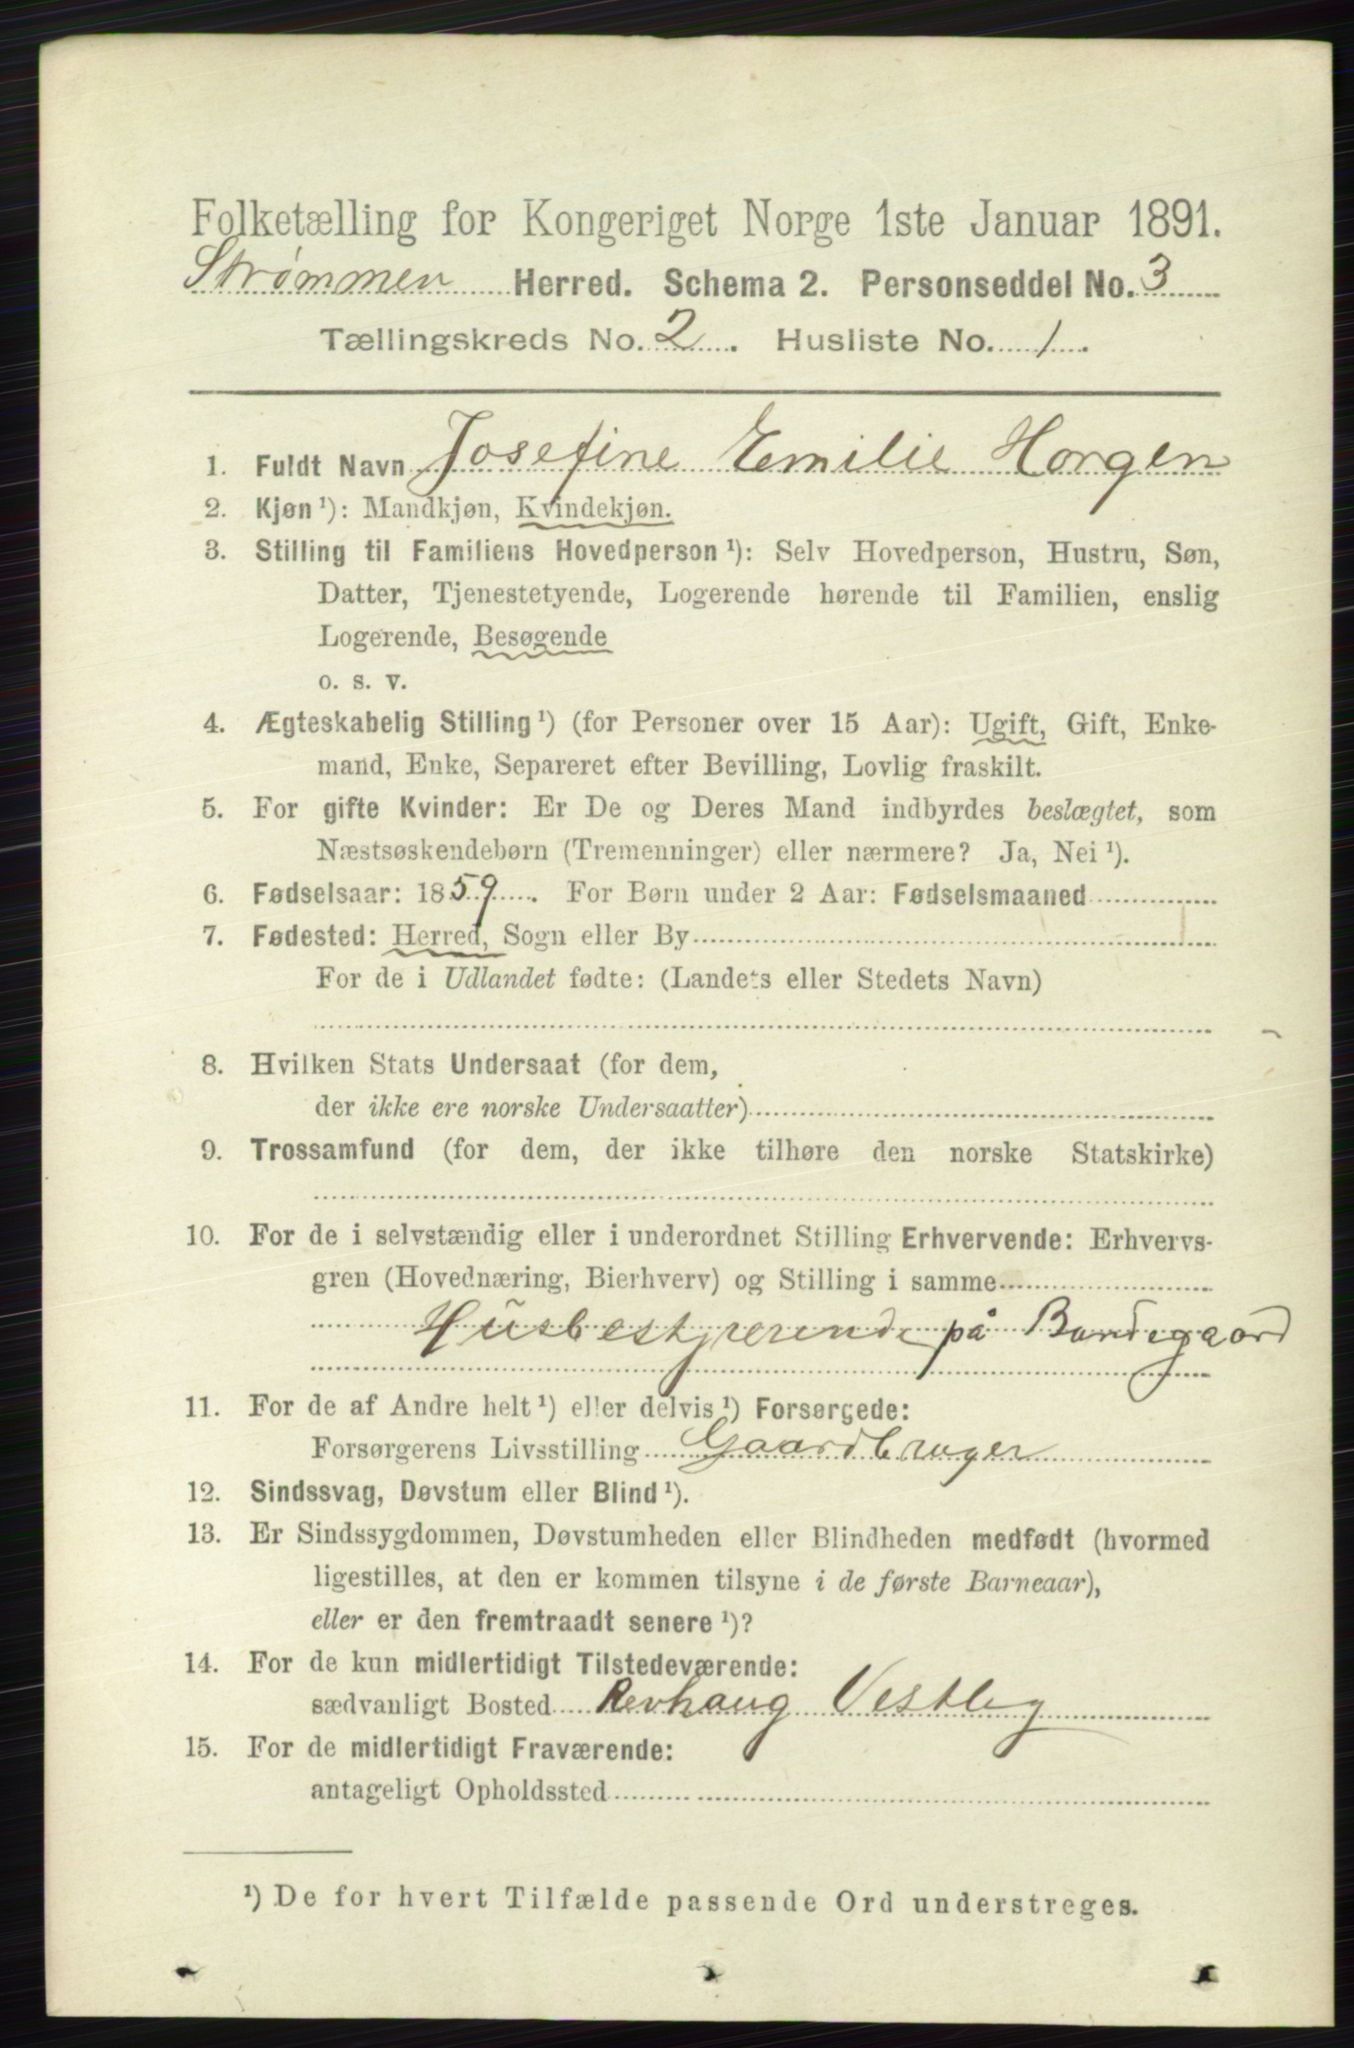 Folketælling for Kongeriget Norge 1ste Januar 1891.
Strømmen Herred. Schema 2. Personseddel No. 3
Tællingskreds No. 2. Husliste No. 1.
1. Fuldt Navn Josefine Emilie Horgen
2. Kjøn ¹): Mandkjøn, Kvindekjøn.
3. Stilling til Familiens Hovedperson ¹): Selv Hovedperson, Hustru, Søn,
Datter, Tjenestetyende, Logerende hørende til Familien, enslig
Logerende, Besøgende
o. s. v.
4. Ægteskabelig Stilling ¹) (for Personer over 15 Aar): Ugift, Gift, Enke-
mand, Enke, Separeret efter Bevilling, Lovlig fraskilt.
5. For gifte Kvinder: Er De og Deres Mand indbyrdes beslægtet, som
Næstsøskendebørn (Tremenninger) eller nærmere? Ja, Nei ¹).
6. Fødselsaar: 1859. For Børn under 2 Aar: Fødselsmaaned
7. Fødested: Herred, Sogn eller By
For de i Udlandet fødte: (Landets eller Stedets Navn)
8. Hvilken Stats Undersaat (for dem,
der ikke ere norske Undersaatter)
9. Trossamfund (for dem, der ikke tilhøre den norske Statskirke)
10. For de i selvstændig eller i underordnet Stilling Erhvervende: Erhvervs-
gren (Hovednæring, Bierhverv) og Stilling i samme
Husbestyrerende på Bondegaard
11. For de af Andre helt ¹) eller delvis ¹) Forsørgede:
Forsørgerens Livsstilling Gaardbruger
12. Sindssvag, Døvstum eller Blind ¹).
13. Er Sindssygdommen, Døvstumheden eller Blindheden medfødt (hvormed
ligestilles, at den er kommen tilsyne i de første Barneaar),
eller er den fremtraadt senere ¹)?
14. For de kun midlertidigt Tilstedeværende:
sædvanligt Bosted Revhaug Vestby
15. For de midlertidigt Fraværende:
antageligt Opholdssted
¹) De for hvert Tilfælde passende Ord understreges.